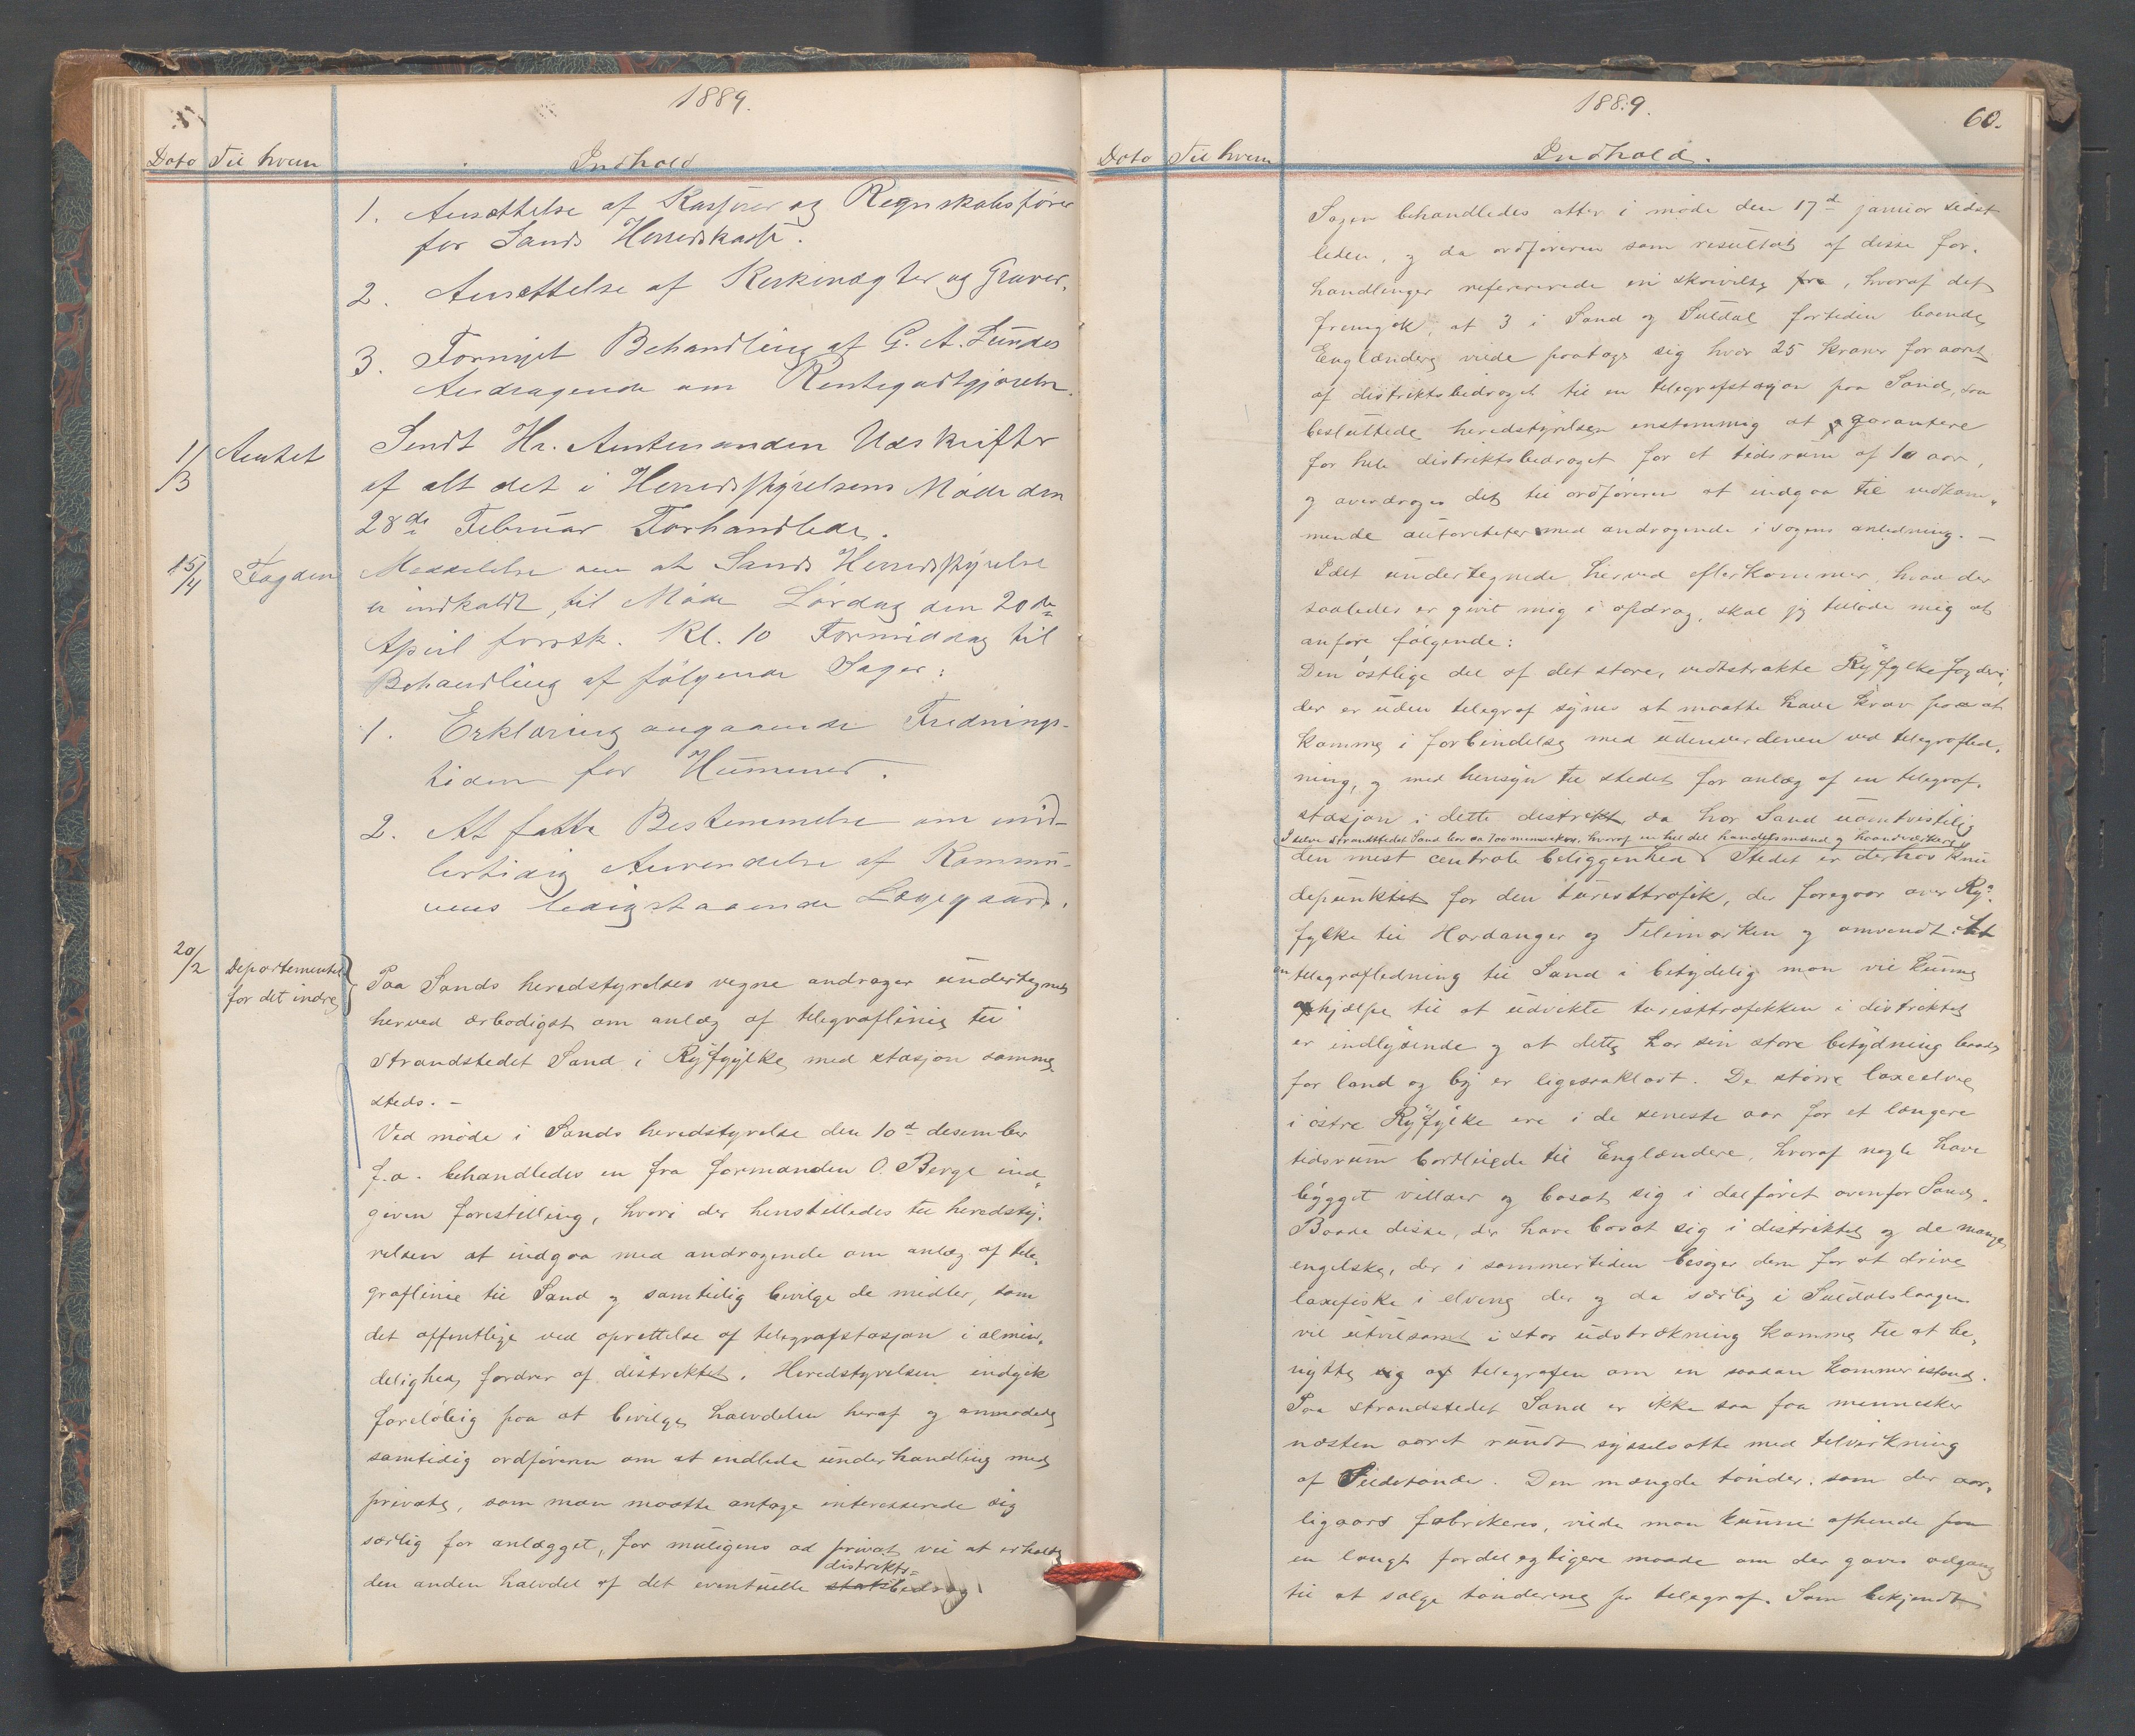 1889.
Dato Til hvem Indhold
1. Ansættelse af Kasserer og Regnskabsfører
for Sands Herredskasse.
2. Ansættelse af Kirkevægter og Graver.
3. Fornyet Behandling af G. A. Lundes
Andragende om Rentegodtgjørelse.
1/3 Amtet Sendt Hr. Amtmanden Udskrifter
af alt det i Herredsstyrelsens Møde den
28de Februar Forhandlede.
15/4 Fogden Meddelelse om at Sands Herredsstyrelse
er indkaldt til Møde Lørdag den 20de
April førstk. Kl. 10 Formiddag til
Behandling af følgende Sager:
1. Erklæring angaaende Frednings-
tiden for Hummer.
2. At fatte Bestemmelse om mid-
lertidig Anvendelse af Kommu-
nens ledigstaaende Lægegaard.
20/2 Departementet for det indre
Paa Sands heredstyrelses vegne andrager undertegnede
herved ærbødigst om anlæg af telegraflinie til
strandstedet Sand i Ryfylke med stasjon samme
steds. –
Ved møde i Sands heredstyrelse den 10d desember
f.a. behandledes en fra formanden O. Berge ind-
given forestilling, hvori der henstilledes til heredsty-
relsen at indgaa med andragende om anlæg af tele-
graflinie til Sand og samtidig bevilge de midler, som
det offentlige ved oprettelse af telegrafstasjon i almin-
delighed fordrer af distriktet. Heredstyrelsen indgik
foreløbig paa at bevilge halvdelen heraf og anmodede
samtidig ordføreren om at indlede underhandling med
private, som man maatte antage interesserede sig
særlig for anlægget, for muligens ad privat vei at erholde
den anden halvdel af det eventuelle stats distrikts-bedrag
1889. 60.
Dato Til hvem Indhold.
Sagen behandledes atter i møde den 17d januar sidst
leden, og da ordføreren som resultat af disse for-
handlinger refererede en skrivelse fra, hvoraf det
fremgik, at 3 i Sand og Suldal fortiden boende
Englændere vilde paatage sig hver 25 kroner for aaret
af distriktsbedraget til en telegrafstasjon paa Sand, saa
besluttede heredstyrelsen enstemmig at garantere
for hele distriktsbedraget for et tidsrum af 10 aar,
og overdroges det til ordføreren at indgaa til vedkom-
mende autoriteter med andragende i sagens anledning. –
Idet undertegnede herved efterkommer, hvad der
saaledes er givet mig i opdrag, skal jeg tillade mig at
anføre følgende:
Den østlige del af det store, vidtstrakte Ryfylke fogderi,
der er uden telegraf synes at maatte have krav paa at
komme i forbindelse med udenverdenen ved telegrafled-
ning, og med hensyn til stedet for anlæg af en telegraf-
stasjon i dette distrikt da har Sand uomtvistelig
I selve strandstedet Sand bor ca 700 mennesker, hvoraf en hel del handelsmænd og haandværkere
den mest centrale beliggenhed. Stedet er derhos knu
depunktet for den turisttrafik, der foregaar over Ry-
fylke til Hardanger og Telemarken og omvendt. At
en telegrafledning til Sand i betydelig mon vil kunne
hjælpe til at udvikle turisttrafikken i distriktet
er indlysende og at dette har sin store betydning baade
for land og by er ligesaaklart. De større laxeelve
i østre Ryfylke ere i de seneste aar for et længere
tidsrum bortleiede til Englændere, hvoraf nogle have
bygget villaer og bosat sig i dalføret ovenfor Sand.
Baade disse, der have bosat sig i distriktet og de mange
engelske, der i sommertiden besøger dem for at drive
laxefiske i elvene der og da særlig i Suldalslaagen
vil utvilsomt i stor udstrækning komme til at be-
nytte sig af telegrafen om en saadan kommer istand.
Paa strandstedet Sand er ikke saa faa mennesker
næsten aaret rundt sysselsatte med tilvirkning
af Sildetønder. Den mængde tønder, som der aar-
ligaars fabrikeres, vilde man kunne afhende paa
en langt fordelagtigere maade om der gaves adgang
til at sælge tønderne pr telegraf. Som bekjendt